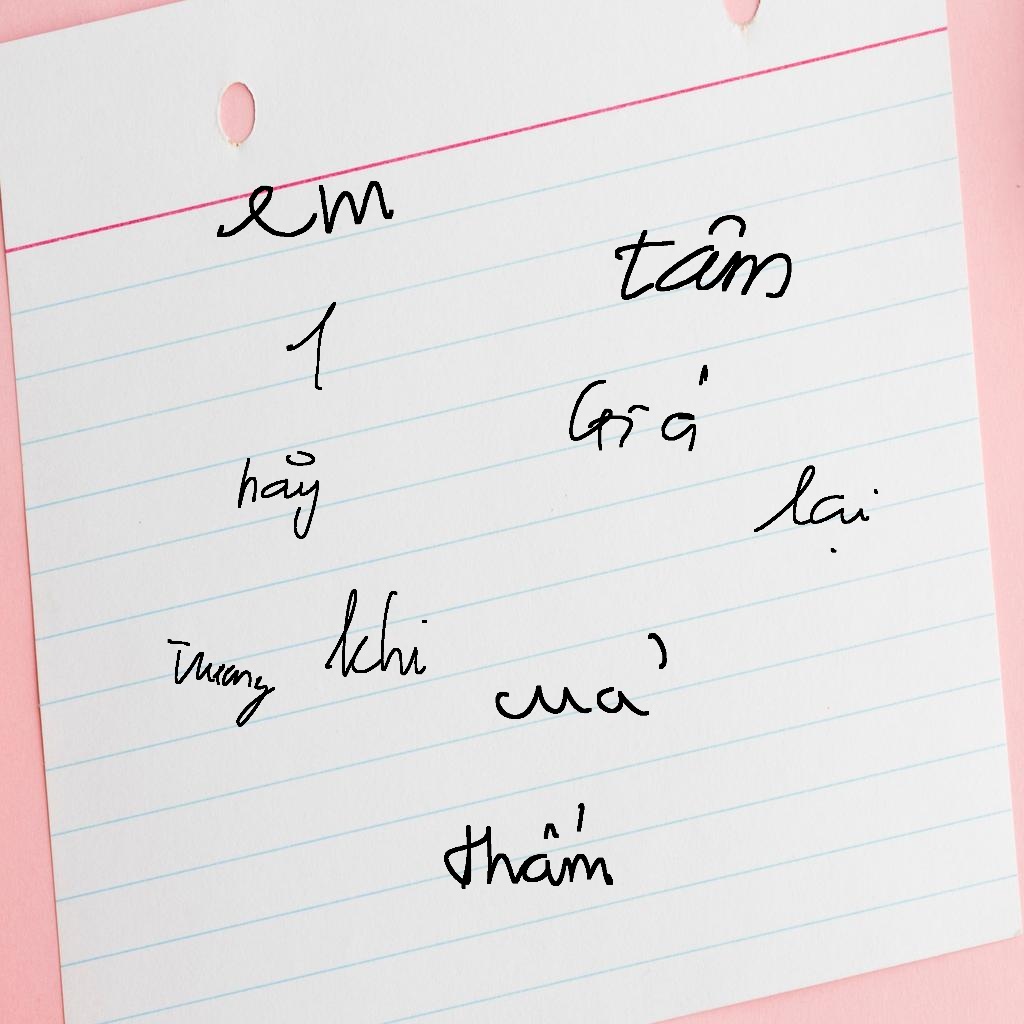 em
tâm
1
Giá
hãy
lại
khi
của
thấm